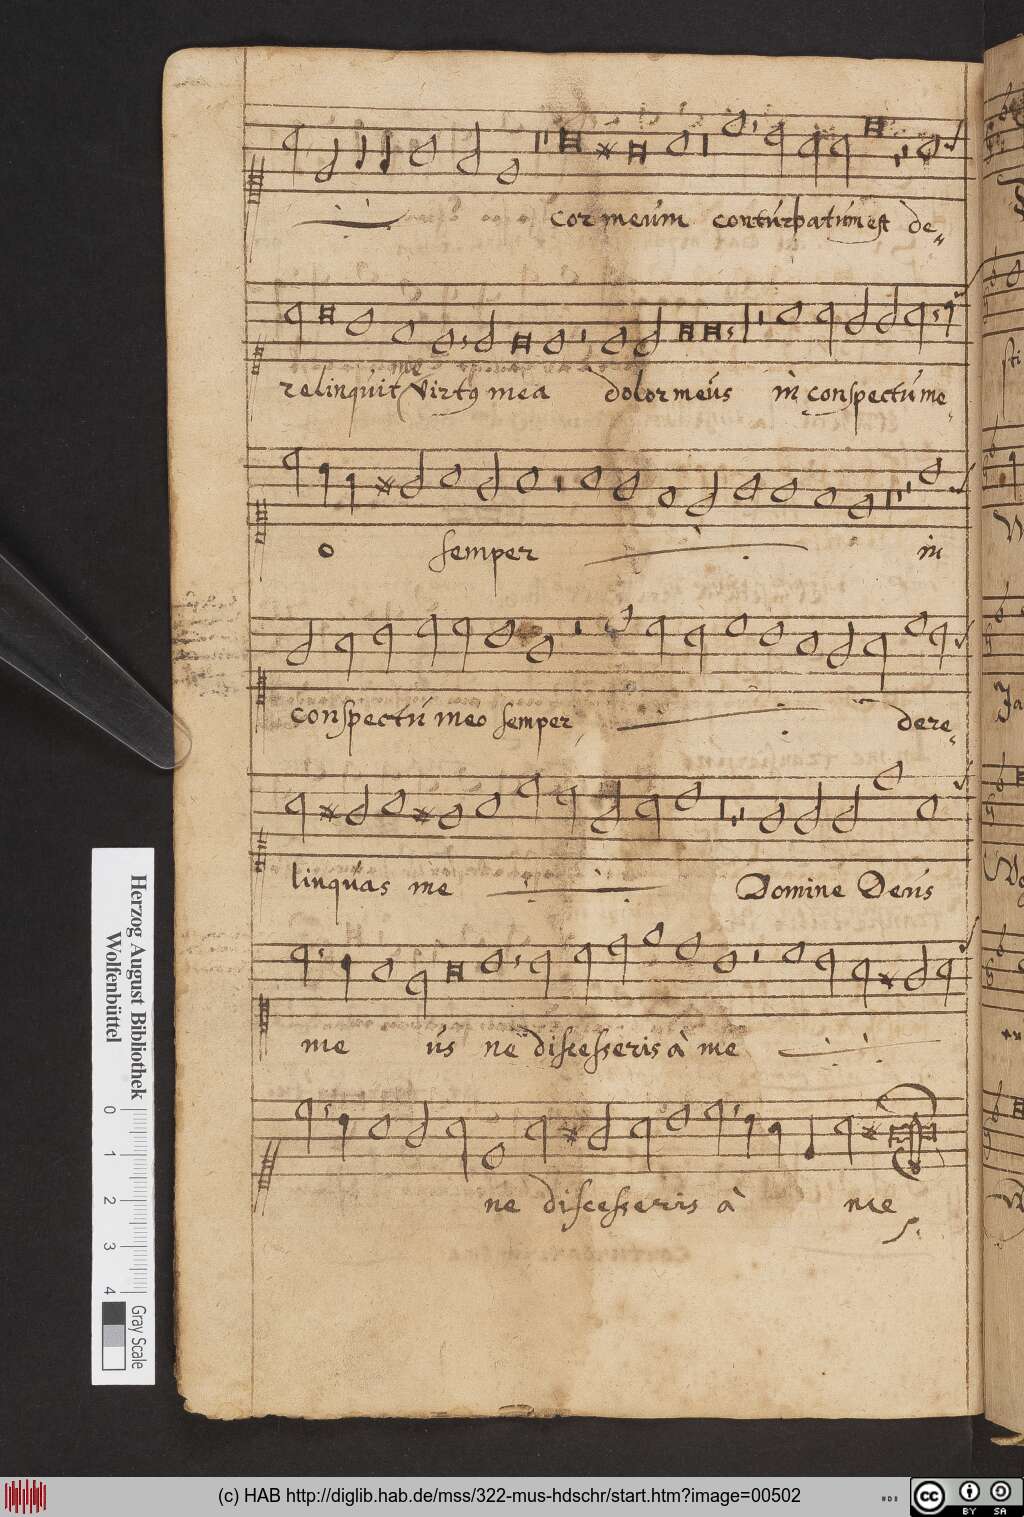 cor meum conturbatum est de„
relinquit me virtus mea dolor meus in conspectu me„
o semper in
conspectu meo semper dere„
linquas me Domine Deus
me us ne discesseris à me
ne discesseris à me
Herzog August Bibliothek
Wolfenbüttel
0 1 2 3 4
Gray Scale
(c) HAB http://diglib.hab.de/mss/322-mus-hdschr/start.htm?image=00502
cc BY SA